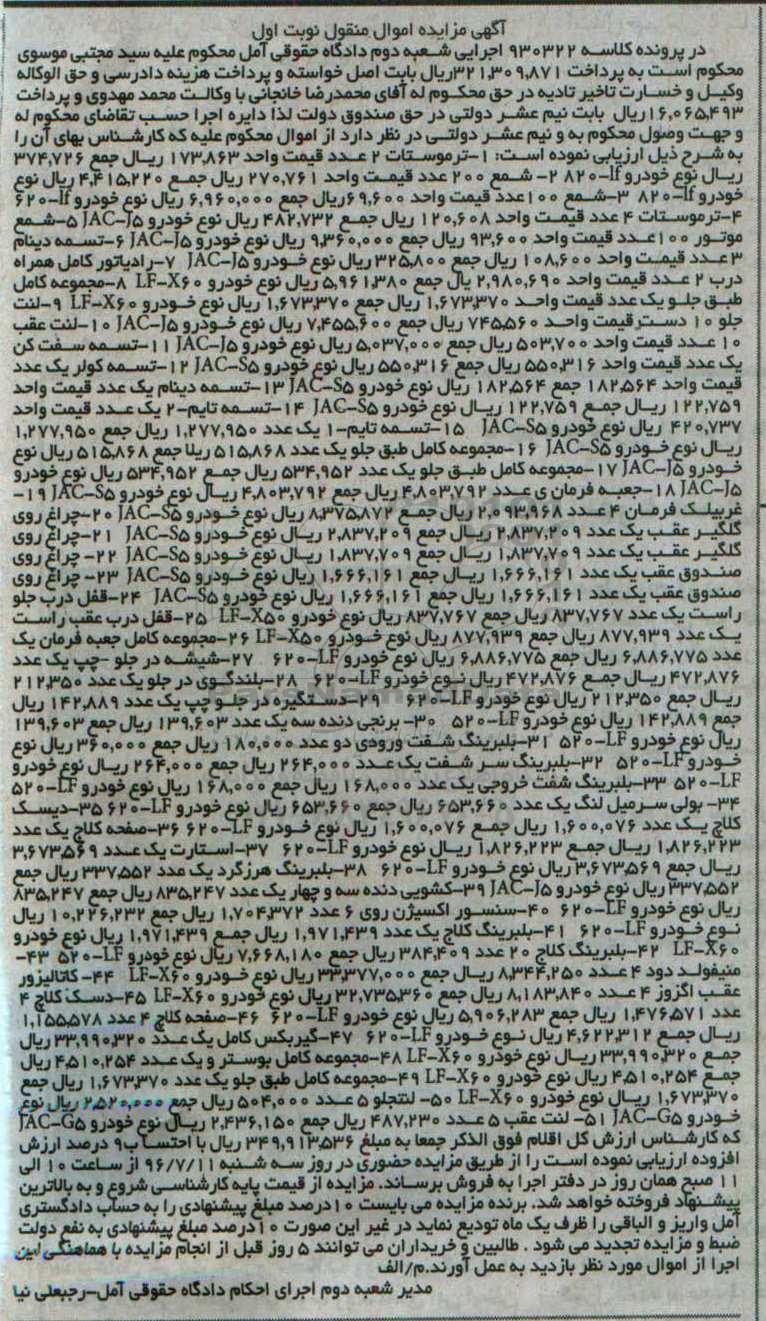 آگهی مزایده اموال منقول نوبت اول
در پرونده کلاسه ۹۳۰۳۲۲ اجرایی شعبه دوم دادگاه حقوقی آمل محکوم علیه سید مجتبی موسوی
محکوم است به پرداخت ۳۲۱,۳۰۹,۸۷۱ریال بابت اصل خواسته و پرداخت هزینه دادرسی و حق الوکاله
وکیل و خسارت تاخیر تادیه در حق محکوم له آقای محمدرضا خانجانی با وکالت محمد مهدوی و پرداخت
۱۶,۰۶۵,۴۹۳ریال بابت نیم عشر دولتی در حق صندوق دولت لذا دایره اجرا حسب تقاضای محکوم له
و جهت وصول محکوم به و نیم عشر دولتی در نظر دارد از اموال محکوم علیه که کارشناس بهای آن را
به شرح ذیل ارزیابی نموده است: ۱-ترموستات ۲ عدد قیمت واحد ۱۷۳,۸۶۳ ریال جمع ۳۷۴,۷۲۶
ریال نوع خودرو lf-۸۲۰ ۲- شمع ۲۰۰ عدد قیمت واحد ۲۷۰,۷۶۱ ریال جمع ۴,۴۱۵,۲۲۰ ریال نوع
خودرو lf-۸۲۰ ۳-شمع ۱۰۰عدد قیمت واحد ۶۹,۶۰۰ریال جمع ۶,۹۶۰,۰۰۰ ریال نوع خودرو lf-۶۲۰
۴-ترموستات ۴ عدد قیمت واحد ۱۲۰,۶۰۸ ریال جمع ۴۸۲,۷۳۲ ریال نوع خودرو JAC-J۵ ۵-شمع
موتور ۱۰۰عدد قیمت واحد ۹۳,۶۰۰ ریال جمع ۹,۳۶۰,۰۰۰ ریال نوع خودرو JAC-J۵ ۶-تسمه دینام
۳ عدد قیمت واحد ۱۰۸,۶۰۰ ریال جمع ۳۲۵,۸۰۰ریال نوع خودرو JAC-J۵ ۷-رادیاتور کامل همراه
درب ۲ عدد قیمت واحد ۲,۹۸۰,۶۹۰ یال جمع ۵,۹۶۱,۳۸۰ ریال نوع خودرو LF-X۶۰ ۸-مجموعه کامل
طبق جلو یک عدد قیمت واحد ۱,۶۷۳,۳۷۰ ریال جمع ۱,۶۷۳,۳۷۰ ریال نوع خودرو LF-X۶۰ ۹-لنت
جلو ۱۰ دست قیمت واحد ۷۴۵,۵۶۰ ریال جمع ۷,۴۵۵,۶۰۰ ریال نوع خودرو JAC-J۵ ۱۰-لنت عقب
۱۰ عدد قیمت واحد ۵۰۳,۷۰۰ ریال جمع ۵,۰۳۷,۰۰۰ ریال نوع خودرو JAC-J۵ ۱۱-تسمه سفت کن
یک عدد قیمت واحد ۵۵۰,۳۱۶ ریال جمع ۵۵۰,۳۱۶ ریال نوع خودرو JAC-S۵ ۱۲-تسمه کولر یک عدد
قیمت واحد ۱۸۲,۵۶۴ جمع ۱۸۲,۵۶۴ ریال نوع خودرو JAC-S۵ ۱۳-تسمه دینام یک عدد قیمت واحد
۱۲۲,۷۵۹ ریال جمع ۱۲۲,۷۵۹ ریال نوع خودرو JAC-S۵ ۱۴-تسمه تایم-۲ یک عدد قیمت واحد
۴۲۰,۷۳۷ ریال نوع خودرو JAC-S۵ ۱۵-تسمه تایم-۱ یک عدد ۱,۲۷۷,۹۵۰ ریال جمع ۱,۲۷۷,۹۵۰
ریال نوع خودرو JAC-S۵ ۱۶-مجموعه کامل طبق جلو یک عدد ۵۱۵,۸۶۸ ریلا جمع ۵۱۵,۸۶۸ ریال نوع
خودرو JAC-J۵ ۱۷-مجموعه کامل طبق جلو یک عدد ۵۳۴,۹۵۲ ریال جمع ۵۳۴,۹۵۲ ریال نوع خودرو
JAC-J۵ ۱۸-جعبه فرمان ی عدد ۴,۸۰۳,۷۹۲ ریال جمع ۴,۸۰۳,۷۹۲ ریال نوع خودرو JAC-S۵ ۱۹-
غربیلک فرمان ۴ عدد ۲,۰۹۳,۹۶۸ ریال جمع ۸,۳۷۵,۸۷۲ ریال نوع خودرو JAC-S۵ ۲۰-چراغ روی
گلگیر عقب یک عدد ۲,۸۳۷,۲۰۹ ریال جمع ۲,۸۳۷,۲۰۹ ریال نوع خودرو JAC-S۵ ۲۱-چراغ روی
گلگیر عقب یک عدد ۱,۸۳۷,۷۰۹ ریال جمع ۱,۸۳۷,۷۰۹ ریال نوع خودرو JAC-S۵ ۲۲- چراغ روی
صندوق عقب یک عدد ۱,۶۶۶,۱۶۱ ریال جمع ۱,۶۶۶,۱۶۱ ریال نوع خودرو JAC-S۵ ۲۳- چراغ روی
صندوق عقب یک عدد ۱,۶۶۶,۱۶۱ ریال جمع ۱,۶۶۶,۱۶۱ ریال نوع خودرو JAC-S۵ ۲۴-قفل درب جلو
راست یک عدد ۸۳۷,۷۶۷ ریال جمع ۸۳۷,۷۶۷ ریال نوع خودرو LF-X۵۰ ۲۵-قفل درب عقب راست
یک عدد ۸۷۷,۹۳۹ ریال جمع ۸۷۷,۹۳۹ ریال نوع خودرو LF-X۵۰ ۲۶-مجموعه کامل جعبه فرمان یک
عدد ۶,۸۸۶,۷۷۵ ریال جمع ۶,۸۸۶,۷۷۵ ریال نوع خودرو LF-۶۲۰ ۲۷-شیشه در جلو -چپ یک عدد
۴۷۲,۸۷۶ ریال جمع ۴۷۲,۸۷۶ ریال نوع خودرو LF-۶۲۰ ۲۸-بلندگوی در جلو یک عدد ۲۱۲,۳۵۰
ریال جمع ۲۱۲,۳۵۰ ریال نوع خودرو LF-۶۲۰ ۲۹-دستگیره در جلو چپ یک عدد ۱۴۲,۸۸۹ ریال
جمع ۱۴۲,۸۸۹ ریال نوع خودرو LF-۵۲۰ ۳۰- برنجی دنده سه یک عدد ۱۳۹,۶۰۳ ریال جمع ۱۳۹,۶۰۳
ریال نوع خودرو LF-۵۲۰ ۳۱-بلبرینگ شفت ورودی دو عدد ۱۸۰,۰۰۰ ریال جمع ۳۶۰,۰۰۰ ریال نوع
خودرو LF-۵۲۰ ۳۲-بلبرینگ سر شفت یک عدد ۲۶۴,۰۰۰ ریال جمع ۲۶۴,۰۰۰ ریال نوع خودرو
LF-۵۲۰ ۳۳-بلبرینگ شفت خروجی یک عدد ۱۶۸,۰۰۰ ریال جمع ۱۶۸,۰۰۰ ریال نوع خودرو LF-۵۲۰
۳۴- پولی سرمیل لنگ یک عدد ۶۵۳,۶۶۰ ریال جمع ۶۵۳,۶۶۰ ریال نوع خودرو LF-۶۲۰ ۳۵-دیسک
کلاچ یک عدد ۱,۶۰۰,۰۷۶ ریال جمع ۱,۶۰۰,۰۷۶ ریال نوع خودرو LF-۶۲۰ ۳۶-صفحه کلاچ یک عدد
۱,۸۲۶,۲۲۳ ریال جمع ۱,۸۲۶,۲۲۳ ریال نوع خودرو LF-۶۲۰ ۳۷-استارت یک عدد ۳,۶۷۳,۵۶۹
ریال جمع ۳,۶۷۳,۵۶۹ ریال نوع خودرو LF-۶۲۰ ۳۸-بلبرینگ هرزگرد یک عدد ۳۳۷,۵۵۲ ریال جمع
۳۳۷,۵۵۲ ریال نوع خودرو JAC-J۵ ۳۹-کشویی دنده سه و چهار یک عدد ۸۳۵,۲۴۷ ریال جمع ۸۳۵,۲۴۷
ریال نوع خودرو LF-۶۲۰ ۴۰-سنسور اکسیژن روی ۶ عدد ۱,۷۰۴,۳۷۲ ریال جمع ۱۰,۲۲۶,۲۳۲ ریال
نوع خودرو LF-۶۲۰ ۴۱-بلبرینگ کلاچ یک عدد ۱,۹۷۱,۴۳۹ ریال جمع ۱,۹۷۱,۴۳۹ ریال نوع خودرو
LF-X۶۰ ۴۲-بلبرینگ کلاچ ۲۰ عدد ۳۸۴,۴۰۹ ریال جمع ۷,۶۶۸,۱۸۰ ریال نوع خودرو LF-۵۲۰ ۴۳-
منیفولد دود ۴ عدد ۸,۳۴۴,۲۵۰ ریال جمع ۳۳,۳۷۷,۰۰۰ ریال نوع خودرو LF-X۶۰ ۴۴- کاتالیزور
عقب اگزوز ۴ عدد ۸,۱۸۳,۸۴۰ ریال جمع ۳۲,۷۳۵,۳۶۰ ریال نوع خودرو LF-X۶۰ ۴۵-دسک کلاچ ۴
عدد ۱,۴۷۶,۵۷۱ ریال جمع ۵,۹۰۶,۲۸۳ ریال نوع خودرو LF-۶۲۰ ۴۶-صفحه کلاچ ۴ عدد ۱,۱۵۵,۵۷۸
ریال جمع ۴,۶۲۲,۳۱۲ ریال نوع خودرو LF-۶۲۰ ۴۷-گیربکس کامل یک عدد ۳۳,۹۹۰,۳۲۰ ریال
جمع ۳۳,۹۹۰,۳۲۰ ریال نوع خودرو LF-X۶۰ ۴۸-مجموعه کامل بوستر و یک عدد ۴,۵۱۰,۲۵۴ ریال
جمع ۴,۵۱۰,۲۵۴ ریال نوع خودرو LF-X۶۰ ۴۹-مجموعه کامل طبق جلو یک عدد ۱,۶۷۳,۳۷۰ ریال جمع
۱,۶۷۳,۳۷۰ ریال نوع خودرو LF-X۶۰ ۵۰- لنتجلو ۵ عدد ۵۰۴,۰۰۰ ریال جمع ۲,۵۲۰,۰۰۰ ریال نوع
خودرو JAC-G۵ ۵۱- لنت عقب ۵ عدد ۴۸۷,۲۳۰ ریال جمع ۲,۴۳۶,۱۵۰ ریال نوع خودرو JAC-G۵
که کارشناس ارزش کل اقلام فوق الذکر جمعا به مبلغ ۳۴۹,۹۱۳,۵۳۶ ریال با احتساب۹ درصد ارزش
افزوده ارزیابی نموده است را از طریق مزایده حضوری در روز سه شنبه ۹۶/۷/۱۱ از ساعت ۱۰ الی
۱۱ صبح همان روز در دفتر اجرا به فروش برساند. مزایده از قیمت پایه کارشناسی شروع و به بالاترین
پیشنهاد فروخته خواهد شد. برنده مزایده می بایست ۱۰درصد مبلغ پیشنهادی را به حساب دادگستری
آمل واریز و الباقی را ظرف یک ماه تودیع نماید در غیر این صورت ۱۰درصد مبلغ پیشنهادی به نفع دولت
ضبط و مزایده تجدید می شود . طالبین و خریداران می توانند ۵ روز قبل از انجام مزایده با هماهنگی این
اجرا از اموال مورد نظر بازدید به عمل آورند.م/الف
مدیر شعبه دوم اجرای احکام دادگاه حقوقی آمل-رجبعلی نیا